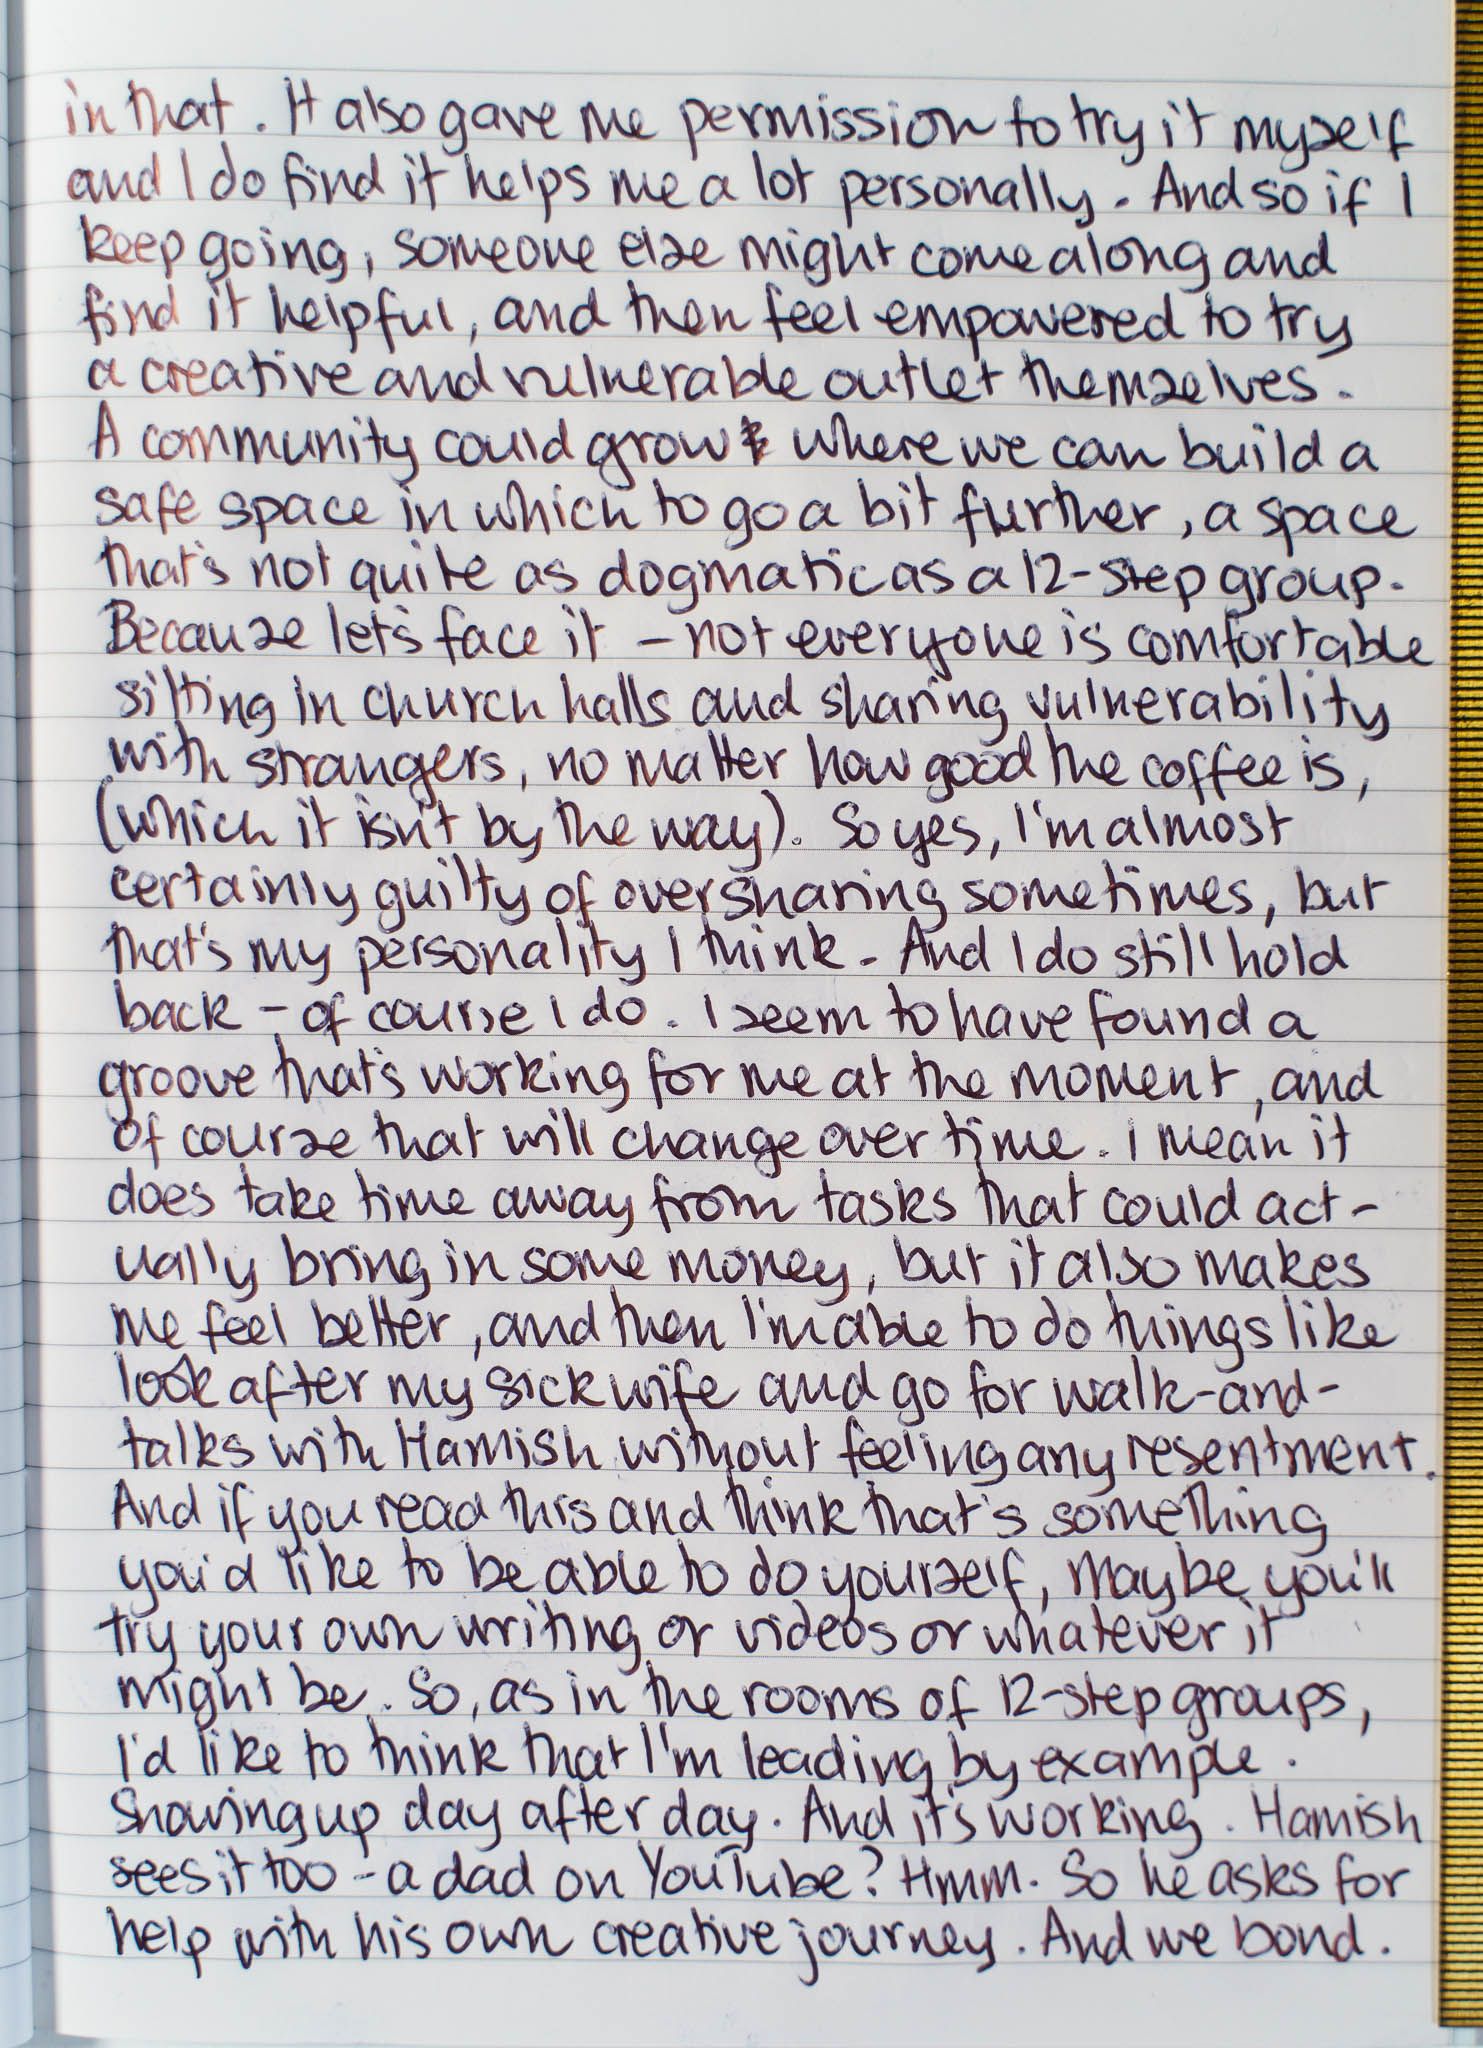 in that. It also gave me permission to try it myself
and I do find it helps me a lot personally. And so if I
keep going, someone else might come along and
find it helpful, and then feel empowered to try
a creative and vulnerable outlet themselves.
A community could grow where we can build a
safe space in which to go a bit further, a space
that's not quite as dogmatic as a 12-step group.
Because let's face it - not everyone is comfortable
sitting in church halls and sharing vulnerability
with strangers, no matter how good the coffee is,
(which it isn't by the way). So yes, I'm almost
certainly guilty of oversharing sometimes, but
that's my personality I think. And I do still hold
back - of course I do. I seem to have found a
groove that's working for me at the moment, and
of course that will change over time. I mean it
does take time away from tasks that could act-
ually bring in some money, but it also makes
me feel better, and then I'm able to do things like
look after my sick wife and go for walk-and-
talks with Hamish without feeling any resentment.
And if you read this and think that's something
you'd like to be able to do yourself, maybe you'll
try your own writing or videos or whatever it
might be. So, as in the rooms of 12-step groups,
I'd like to think that I'm leading by example.
Showing up day after day. And it's working. Hamish
sees it too - a dad on YouTube? Hmm. So he asks for
help with his own creative journey. And we bond.